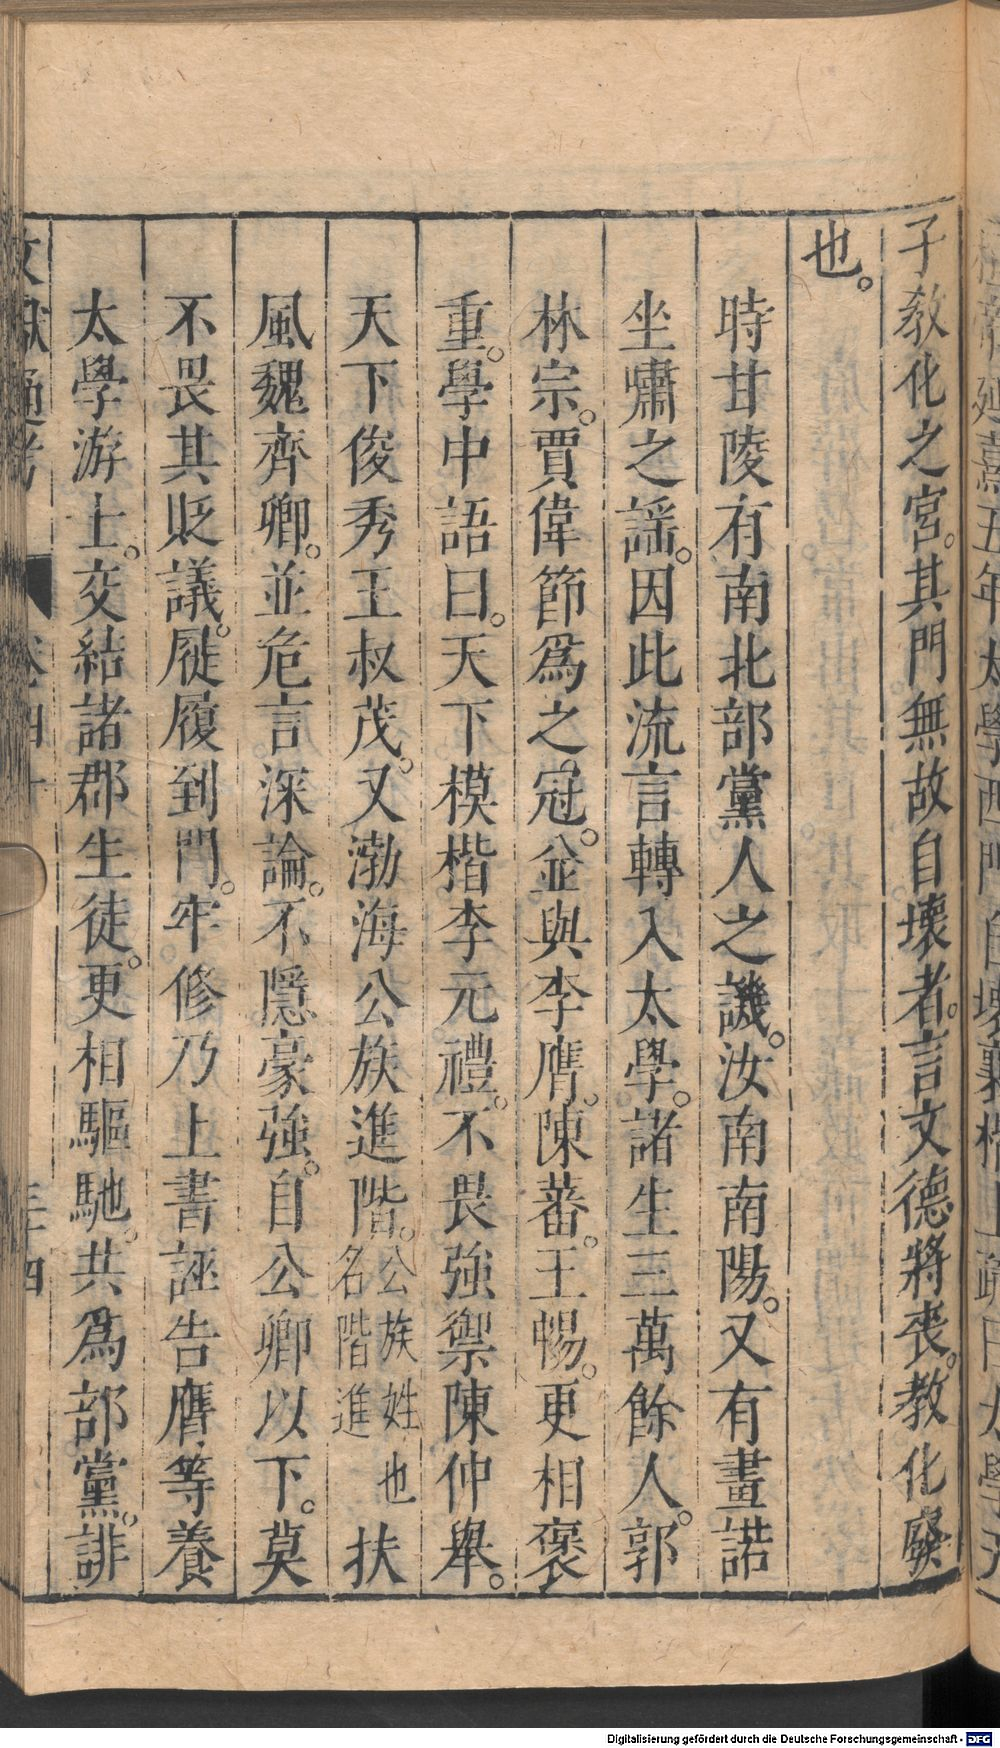 子教化之宮。其門無故自壞者。言文德將喪。教化廢
也。
時甘陵有南北部黨人之譏。汝南南陽。又有畫諾
坐嘯之謡。因此流言轉入太學。諸生三萬餘人。郭
林宗。賈偉節爲之冠。並與李膺。陳蕃。王暢。更相褒
重。學中語曰。天下模楷李元禮。不畏強禦陳仲舉。
天下俊秀王叔茂。又渤海公族進階。公族姓也名階進扶
風魏齊卿。並危言深論。不隱豪強。自公卿以下。莫
不畏其貶議。屣履到門。牢修乃上書誣告膺等養
太學游士。交結諸郡生徒。更相驅馳。共爲部黨。誹
文獻通考 卷四十 三四
Digitalisierung gefördert durch die Deutsche Forschungsgemeinschaft - DFG